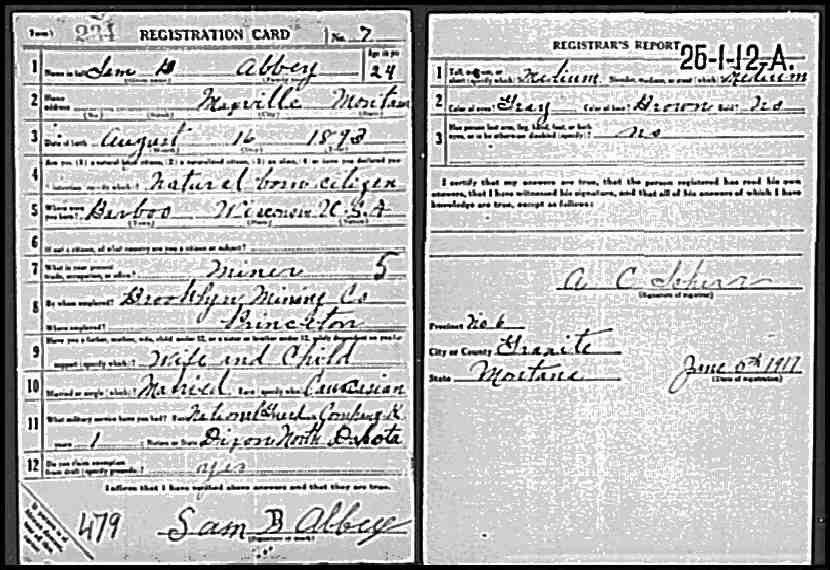 Form 1 231 REGISTRATION CARD No. 7
1 Name in full Sam B Abbey Age, in yrs 24
(Given name) (Family name)
2 Home address Maxville Montana
(No.) (City) (State)
3 Date of birth August 16 1892
(Month) (Day) (Year)
4 Are you (1) a natural born citizen, (2) a naturalized citizen, (3) an alien, (4) or have you declared your
intention (specify which)? Natural born citizen
5 Where were you born? Barboo Wisconsin U.S.A
(Town) (State) (Nation)
6 If not a citizen, of what country are you a citizen or subject?
7 What is your present trade, occupation, or office? Miner 5
8 By whom employed? Brooklyn Mining Co
Where employed? Princeton
9 Have you a father, mother, wife, child under 12, or a sister or brother under 12, solely dependent on you for
support (specify which)? Wife and Child
10 Married or single (which)? Married Race (specify which)? Caucasian
11 What military service have you had? Rank National Guard Company K
years 1 ; Nation or State Dixon North Dakota
12 Do you claim exemption from draft (specify grounds)? yes
I affirm that I have verified above answers and that they are true.
479
Sam B Abbey
(Signature or mark)
REGISTRAR'S REPORT 26-1-12-A.
1 Tall, medium, or short (specify which)? Medium Slender, medium, or stout (which)? Medium
2 Color of eyes? Gray Color of hair? Brown Bald? No
3 Has person lost arm, leg, hand, foot, or both eyes, or is he otherwise disabled (specify)? no
I certify that my answers are true, that the person registered has read his own
answers, that I have witnessed his signature, and that all of his answers of which I have
knowledge are true, except as follows:
A C
(Signature of registrar)
Precinct No 6
City or County Granite
State Montana
June 5th 1917
(Date of registration)